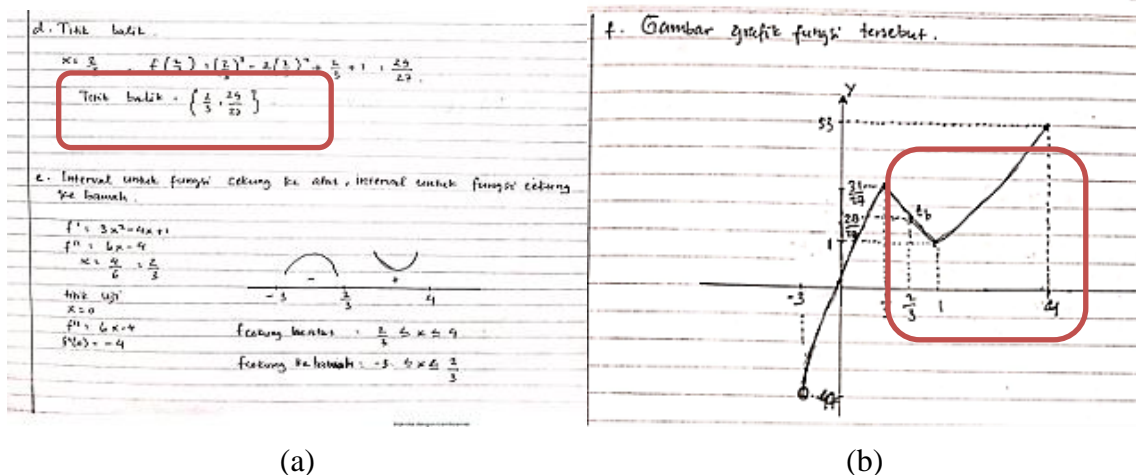 d. Titik balik.
x = 2/3 . f(2/3) = (2/3)³ - 2(2/3)² + 2/3 + 1 = 29/27.
Titik balik = {2/3, 29/27}
e. Interval untuk fungsi cekung ke atas, interval untuk fungsi cekung
ke bawah.
f' = 3x²-4x+1
f'' = 6x-4
x = 4/6 = 2/3
- +
-3 2/3 4
titik uji
x=0
f'' = 6x-4
f''(0) = -4
fcekung keatas : 2/3 ≤ x ≤ 4
fcekung ke bawah : -3 ≤ x ≤ 2/3
(a)
f. Gambar grafik fungsi tersebut.
Y
tb
1
-3 2/3 1 4
(b)